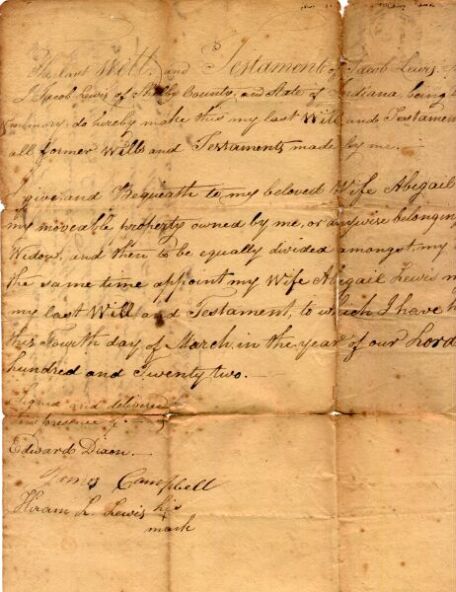 The last Will and Testament of Jacob Lewis.
I Jacob Lewis of Shelby County, and State of Indiana being
memory, do hereby make this my last Will and Testamen
all former Wills and Testaments made by me.
I give and Bequeath to my beloved Wife Abigail
my moveable property owned by me, or anywise belongin
Widow, and then to be equally divided amongst my
the same time appoint my Wife Abigail Lewis m
my last Will and Testament, to which I have h
this Fourth day of March, in the year of our Lord
hundred and Twenty two.
Signed and delivered
in presence of
Edward Dixon.
James Campbell
Hiram L. Lewis his
mark